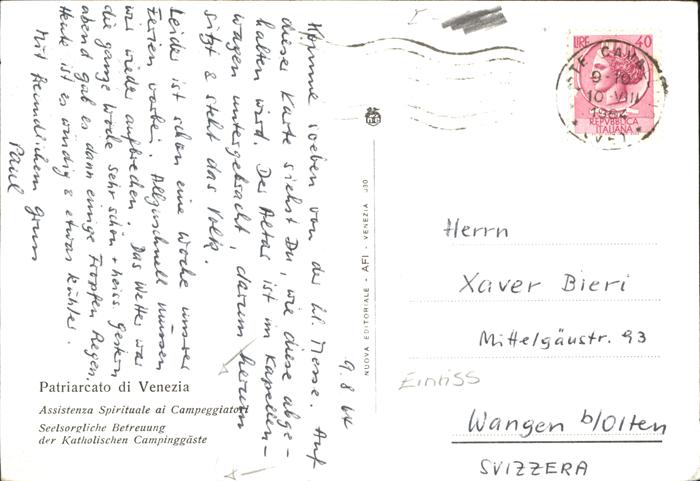 9.8.64
Komme soeben von der hl. Messe. Auf
dieser Karte siehst Du, wie diese abge-
halten wird. Der Altar ist im Kapellen-
wagen untergebracht, darum herum
sitzt & steht das Volk.
Leider ist schon eine Woche unserer
Ferien vorbei. Allzuschnell müssen
wir wieder aufbrechen. Das Wetter war
die ganze Woche sehr schön + heiss. Gestern
abend gab es dann einige Tropfen Regen.
Heute ist es windig & etwas kühler.
Mit freundlichem Gruss
Paul
Patriarcato di Venezia
Assistenza Spirituale ai Campeggiatori
Seelsorgliche Betreuung
der Katholischen Campinggäste
NUOVA EDITORIALE - AFI - VENEZIA 030
LIRE 40
REPVBBLICA
ITALIANA
TE CAVA
9-10
10 VIII
1964
Herrn
Xaver Bieri
Mittelgäustr. 93
Eintiss
Wangen b/Olten
SVIZZERA